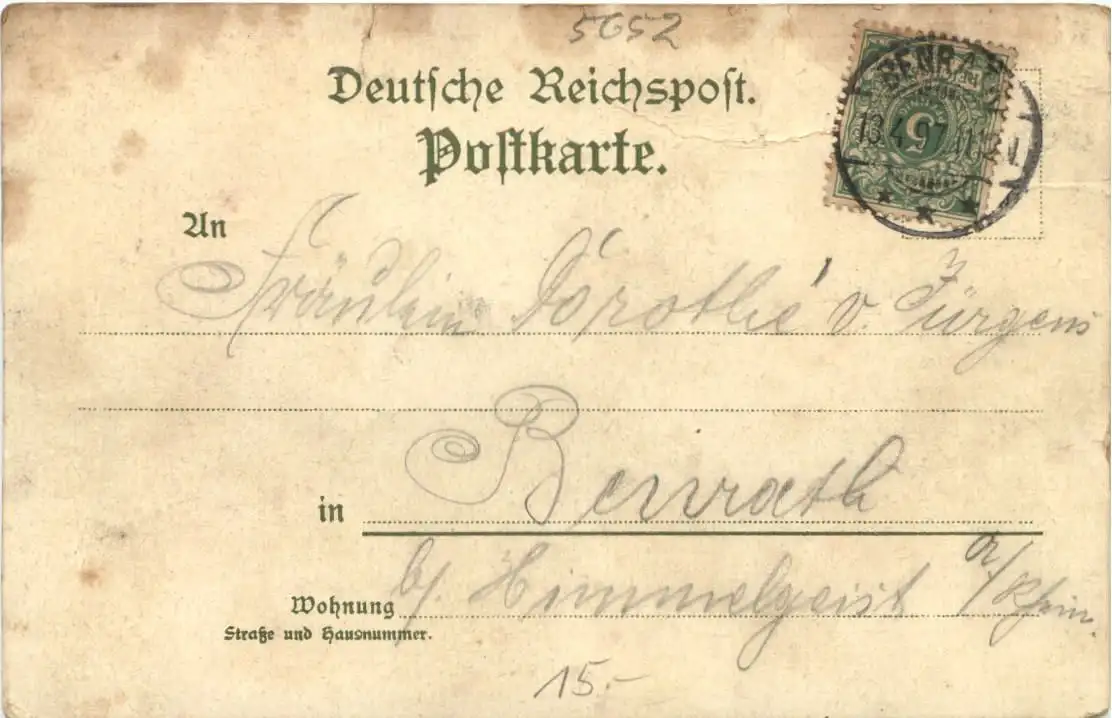 5652
Deutsche Reichspost.
Postkarte.
BENRATH
13.4.97. 11-12V.
5
An
Fräulein Dorothé v. Jürgens
in Benrath
b/ Himmelgeist a/Rhein.
Wohnung
Straße und Hausnummer.
15.-